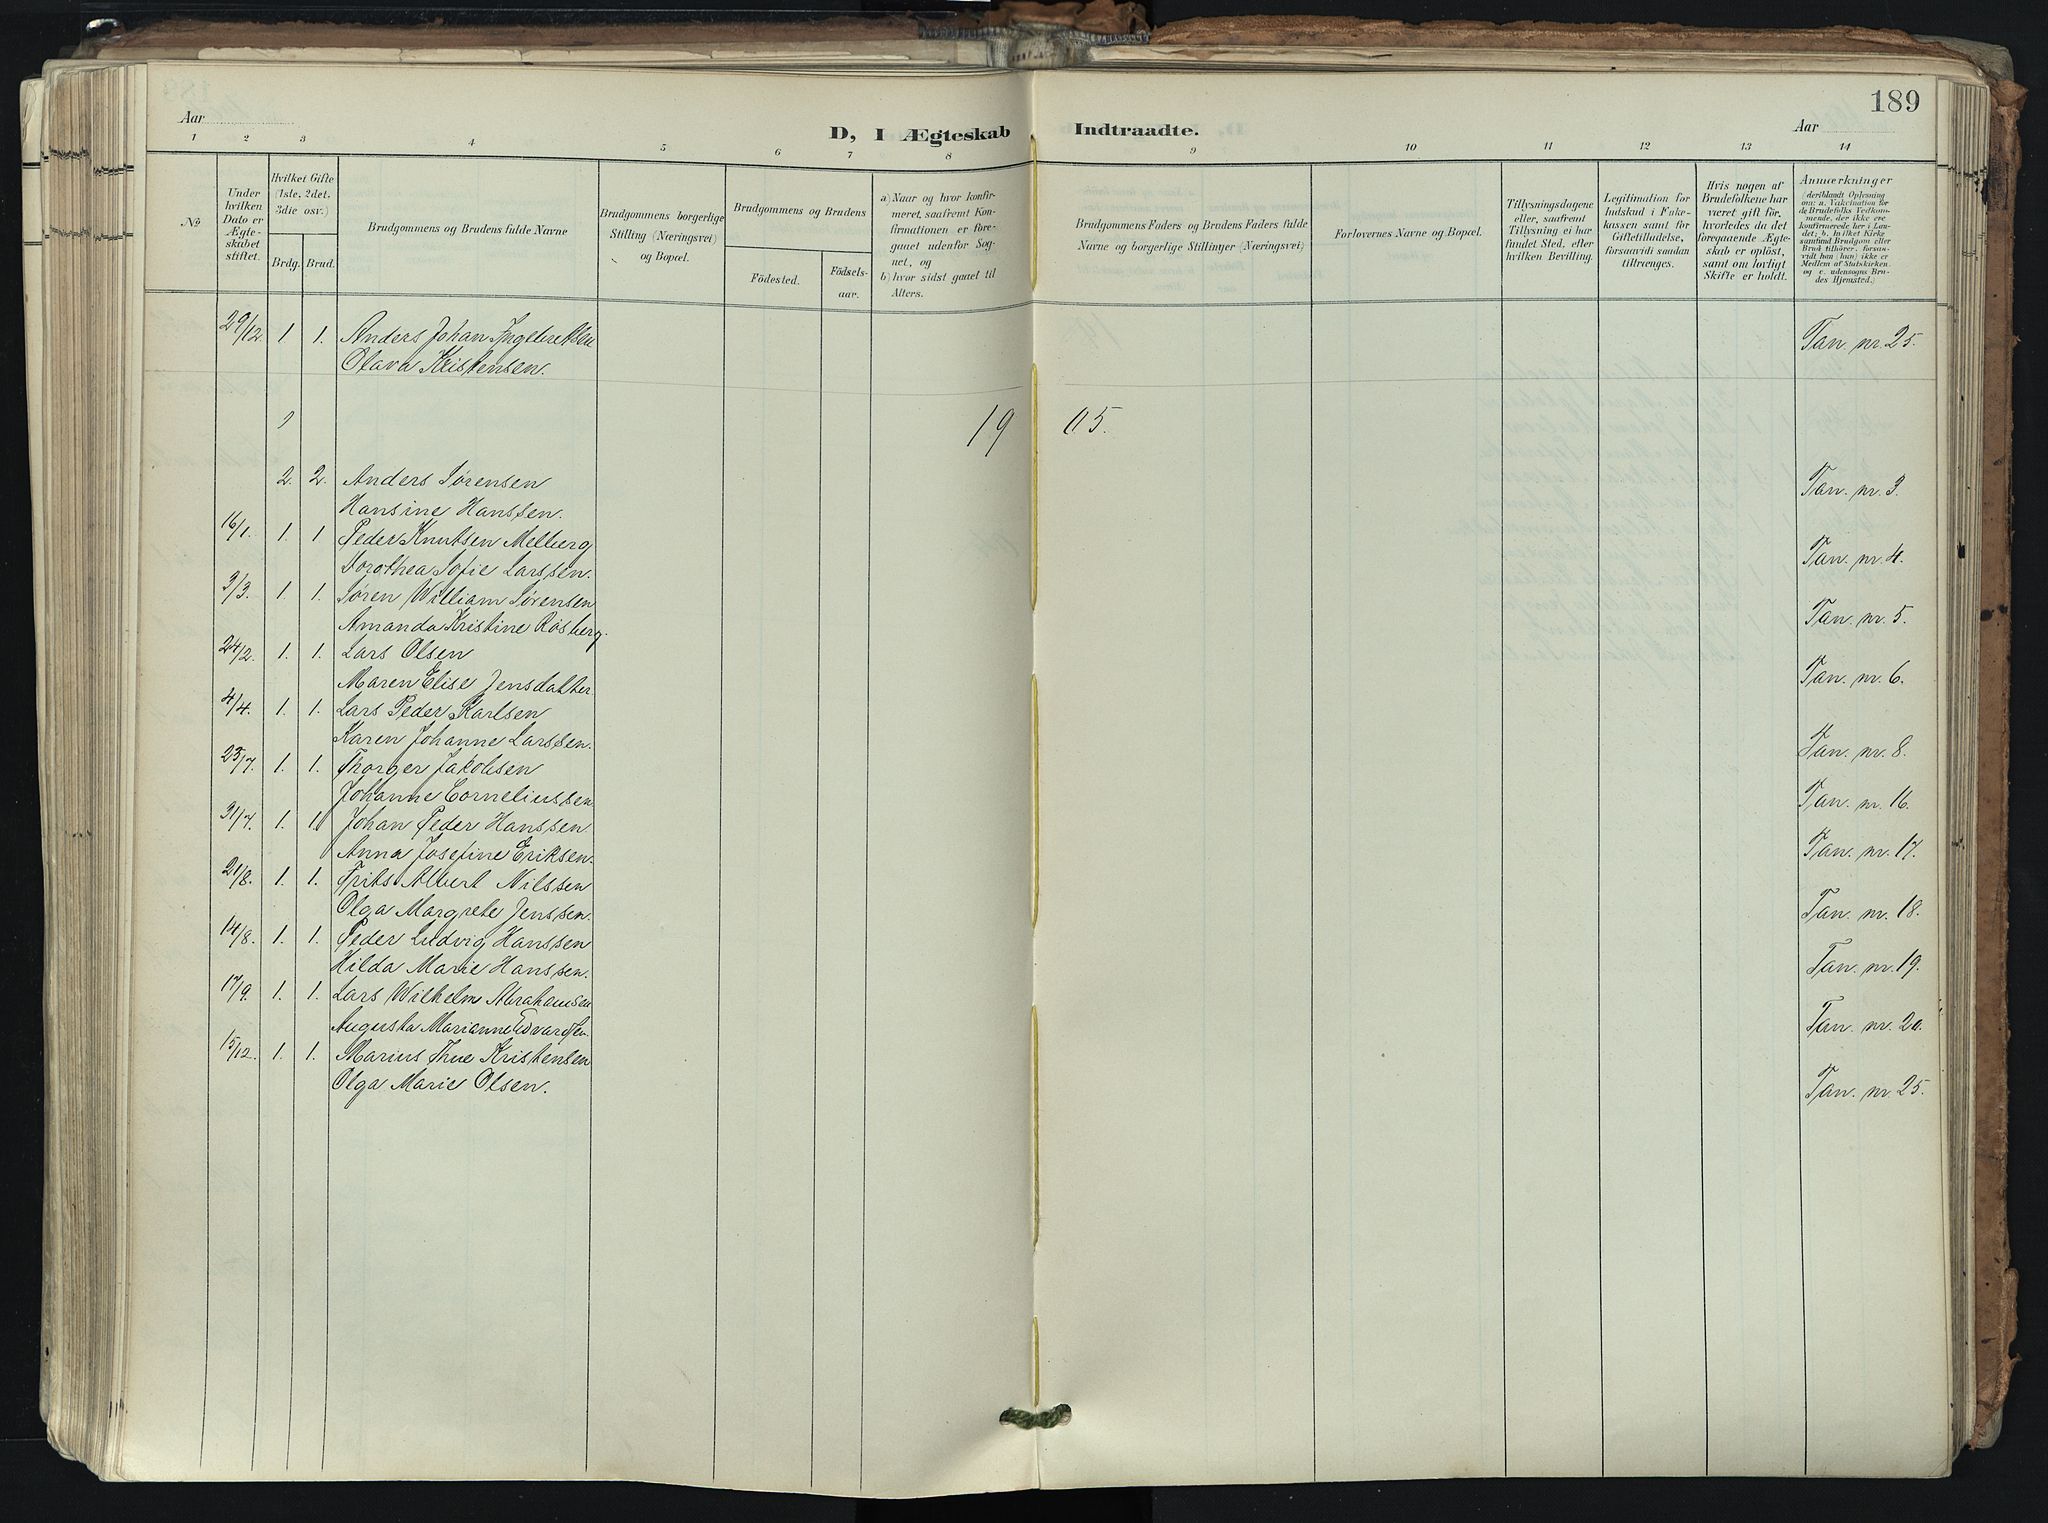 189
Aar
Aar
D, I Ægteskab Indtraadte.
1 2 3 4 5 6 7 8 9 10 11 12 13 14
No
Under hvilken Dato er Ægteskabet stiftet.
Hvilket Gifte (1ste, 2det, 3die osv.)
Brdg. Brud.
Brudgommens og Brudens fulde Navne
Brudgommens borgerlige Stilling (Næringsvei) og Bopæl.
Brudgommens og Brudens
Födested.
Födsels-aar.
a) Naar og hvor konfirmeret, saafremt Konfirmationen er foregaaet udenfor Sognet, og
b) hvor sidst gaaet til Alters.
Brudgommens Faders og Brudens Faders fulde Navne og borgerlige Stillinger (Næringsvei)
Forlovernes Navne og Bopæl.
Tillysningsdagene eller, saafremt Tillysning ei har fundet Sted, efter hvilken Bevilling.
Legitimation for Indskud i Enkekassen samt for Giftetilladelse, forsaavidt saadan tiltrænges.
Hvis nogen af Brudefolkene har været gift för, hvorledes da det foregaaende Ægteskab er oplöst, samt om lovligt Skifte er holdt.
Anmærkninger
(deriblandt Oplysning om: a. Vakcination for de Brudefolks Vedkommende, der ikke ere konfirmerede her i Landet; b. hvilket Kirkesamfund Brudgom eller Brud tilhörer, forsaavidt han (hun) ikke er Medlem af Statskirken og c. udensogns Brudes Hjemsted.)
29/12. 1. 1. Anders Johan Ingebretsen Tan. nr. 25.
Olava Kristensen.
19 05.
2. 2. Anders Sørensen Tan. nr. 3.
Hansine Hanssen.
16/1. 1. 1 Peder Knutsen Melberg Tan. nr. 4.
Dorothea Sofie Larssen.
3/3. 1. 1. Søren William Sørensen Tan. nr. 5.
Amanda Kristine Rosberg.
24/2. 1. 1. Lars Olsen Tan. nr. 6.
Maren Elise Jensdatter.
4/4. 1. 1. Lars Peder Karlsen
Karen Johanne Larssen. Tan. nr. 8.
23/7. 1. 1. Thorger Jakobsen
Johanne Corneliussen Tan. nr. 16.
31/7. 1. 1. Johan Peder Hanssen
Anna Josefine Eriksen. Tan. nr. 17.
21/8. 1. 1. Frits Albert Nilssen
Olga Margrete Jenssen. Tan. nr. 18.
14/8. 1. 1. Peder Ludvig Hanssen
Hilda Marie Hanssen. Tan. nr. 19.
17/9. 1. 1. Lars Wilhelm Abrahamsen
Augusta Marianne Edvardsen. Tan. nr. 20.
15/12. 1. 1. Marius Thue Kristensen
Olga Marie Olsen. Tan. nr. 25.